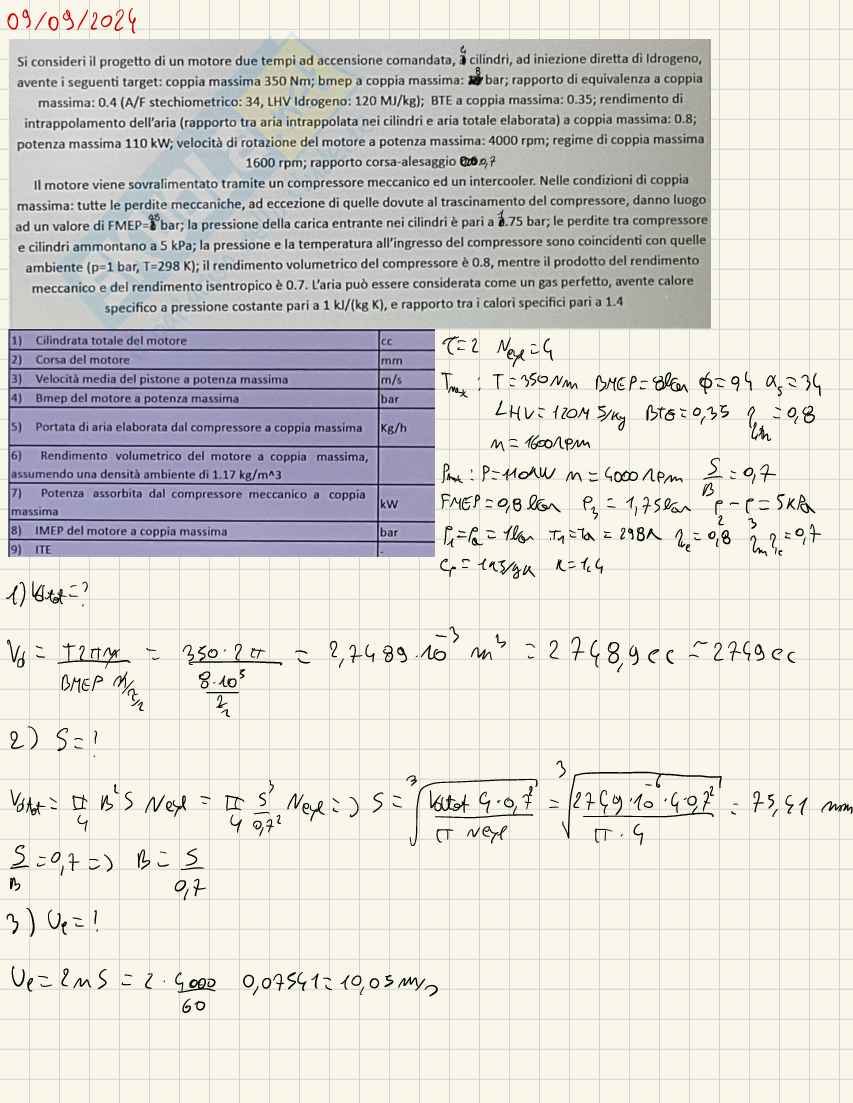 09/09/2024
Si consideri il progetto di un motore due tempi ad accensione comandata, 4 cilindri, ad iniezione diretta di Idrogeno,
avente i seguenti target: coppia massima 350 Nm; bmep a coppia massima: 8 bar; rapporto di equivalenza a coppia
massima: 0.4 (A/F stechiometrico: 34, LHV Idrogeno: 120 MJ/kg); BTE a coppia massima: 0.35; rendimento di
intrappolamento dell'aria (rapporto tra aria intrappolata nei cilindri e aria totale elaborata) a coppia massima: 0.8;
potenza massima 110 kW; velocità di rotazione del motore a potenza massima: 4000 rpm; regime di coppia massima
1600 rpm; rapporto corsa-alesaggio 0,7
Il motore viene sovralimentato tramite un compressore meccanico ed un intercooler. Nelle condizioni di coppia
massima: tutte le perdite meccaniche, ad eccezione di quelle dovute al trascinamento del compressore, danno luogo
ad un valore di FMEP= bar; la pressione della carica entrante nei cilindri è pari a 1.75 bar; le perdite tra compressore
e cilindri ammontano a 5 kPa; la pressione e la temperatura all'ingresso del compressore sono coincidenti con quelle
ambiente (p=1 bar, T=298 K); il rendimento volumetrico del compressore è 0.8, mentre il prodotto del rendimento
meccanico e del rendimento isentropico è 0.7. L'aria può essere considerata come un gas perfetto, avente calore
specifico a pressione costante pari a 1 kJ/(kg K), e rapporto tra i calori specifici pari a 1.4
1) Cilindrata totale del motore cc
2) Corsa del motore mm
3) Velocità media del pistone a potenza massima m/s
4) Bmep del motore a potenza massima bar
5) Portata di aria elaborata dal compressore a coppia massima Kg/h
6) Rendimento volumetrico del motore a coppia massima,
assumendo una densità ambiente di 1.17 kg/m^3
7) Potenza assorbita dal compressore meccanico a coppia
massima kW
8) IMEP del motore a coppia massima bar
9) ITE -
τ=2 Ncyl=4
Tmax: T=350Nm BMEP=8bar ϕ=0,4 αs=34
LHV=120MJ/kg BTE=0,35 η =0,8
n=1600rpm
Pmax: P=110kW n=4000rpm S/B=0,7
FMEP=0,8bar p3=1,75bar p2-p3=5kPa
p1=pa=1bar T1=Ta=298K ηc=0,8 ηmηic=0,7
cp=1kJ/kgK k=1.4
1) Vdtot=?
Vd = T2πn / BMEP n/τ/2 = 350·2π / 8·10^5 / 2/2 = 2,7489·10^-3 m^3 = 2748,9cc ~ 2749cc
2) S=?
Vdtot= π/4 B^2 S Ncyl = π/4 S^3/0,7^2 Ncyl => S = ∛(Vdtot 4·0,7^2 / π Ncyl) = ∛(2749·10^-6·4·0,7^2 / π·4) = 75,41 mm
S/B=0,7 => B= S/0,7
3) Up=?
Up=2nS = 2·4000/60 0,07541=10,05m/s